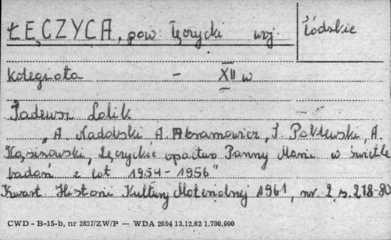 ŁĘCZYCA, pow Łęczycki woj. Łódzkie
Kolegiata – XII w
Tadeusz Lalik
„A. Nadolski A. Abramowicz, T. Poklewski, A.
Kąsinowski, Łęczyckie opactwo Panny Marii w świetle
badań z lat 1954-1956"
Kwart. Historii Kultury Materialnej 1961, nr. 2 s. 218-80
CWD - B-15-b, nr 2827/ZW/P — WDA 2694 13.12.62 1.700,000